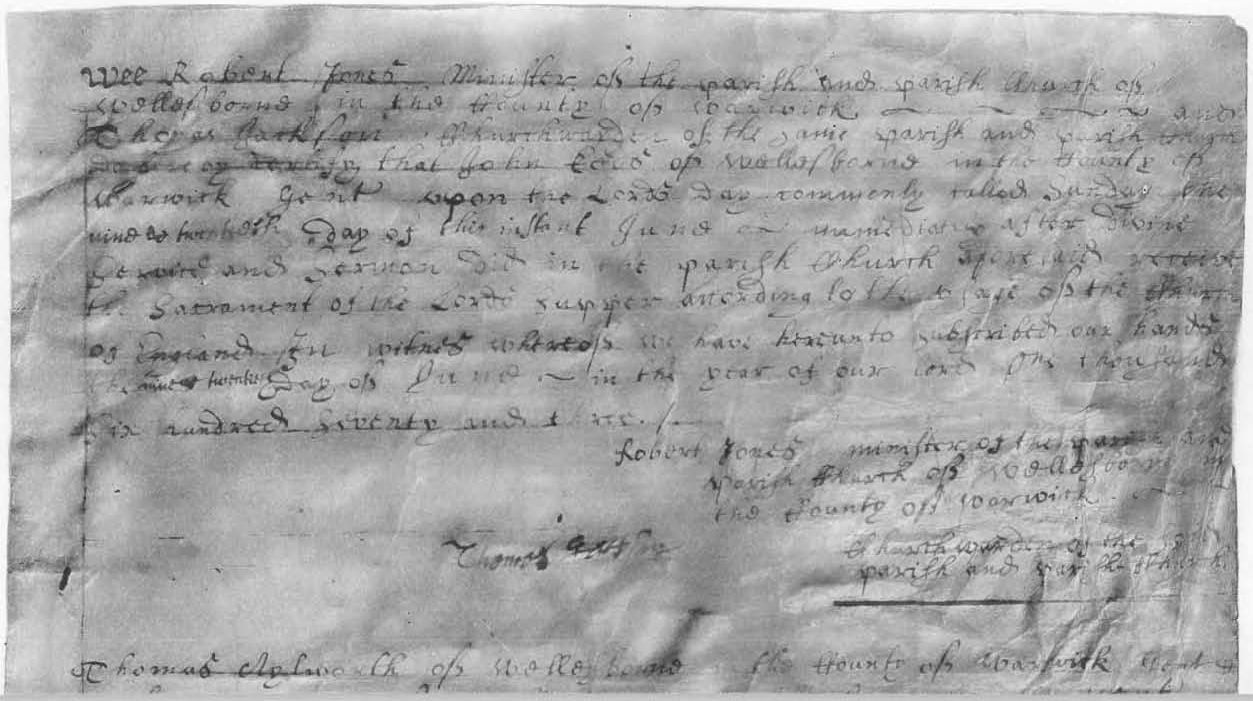 Wee Robert Jones Minister of the parish and parish Church of
Wellesborne in the County of Warwick and
Thomas Jackson Churchwarden of the same parish and parish Church
do hereby certify that John Eels of Wellesborne in the County of
Warwick Gent upon the Lords day commonly called Sunday the
nine & twentieth day of this instant June immediately after divine
Service and Sermon did in the parish Church aforesaid receive
the Sacrament of the Lords Supper according to the usage of the Church
of England In witnes whereof we have hereunto subscribed our hands
the nine & twentieth day of June in the year of our Lord One thousand
Six hundred Seventy and three.
Robert Jones minister of the parish and
parish Church of Wellesborne in
the County of Warwick
Thomas Churchwarden of the said
parish and parish Church
Thomas Aylworth of Wellesborne the County of Warwick Gent